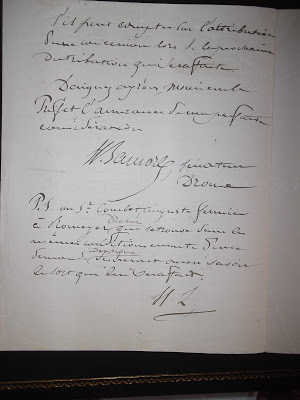 s'il peut compter sur l'attribution
d'une concession lors de la prochaine
distribution qui sera faite
Daignez agréer, Monsieur le
Préfet l'assurance de ma parfaite
considération
sénateur
Drome
P.S. un Sr. Combet Auguste
Drome
à Romeyer, qui se trouve dans les
mêmes conditions
aussi savoir
le sort qui lui sera fait.